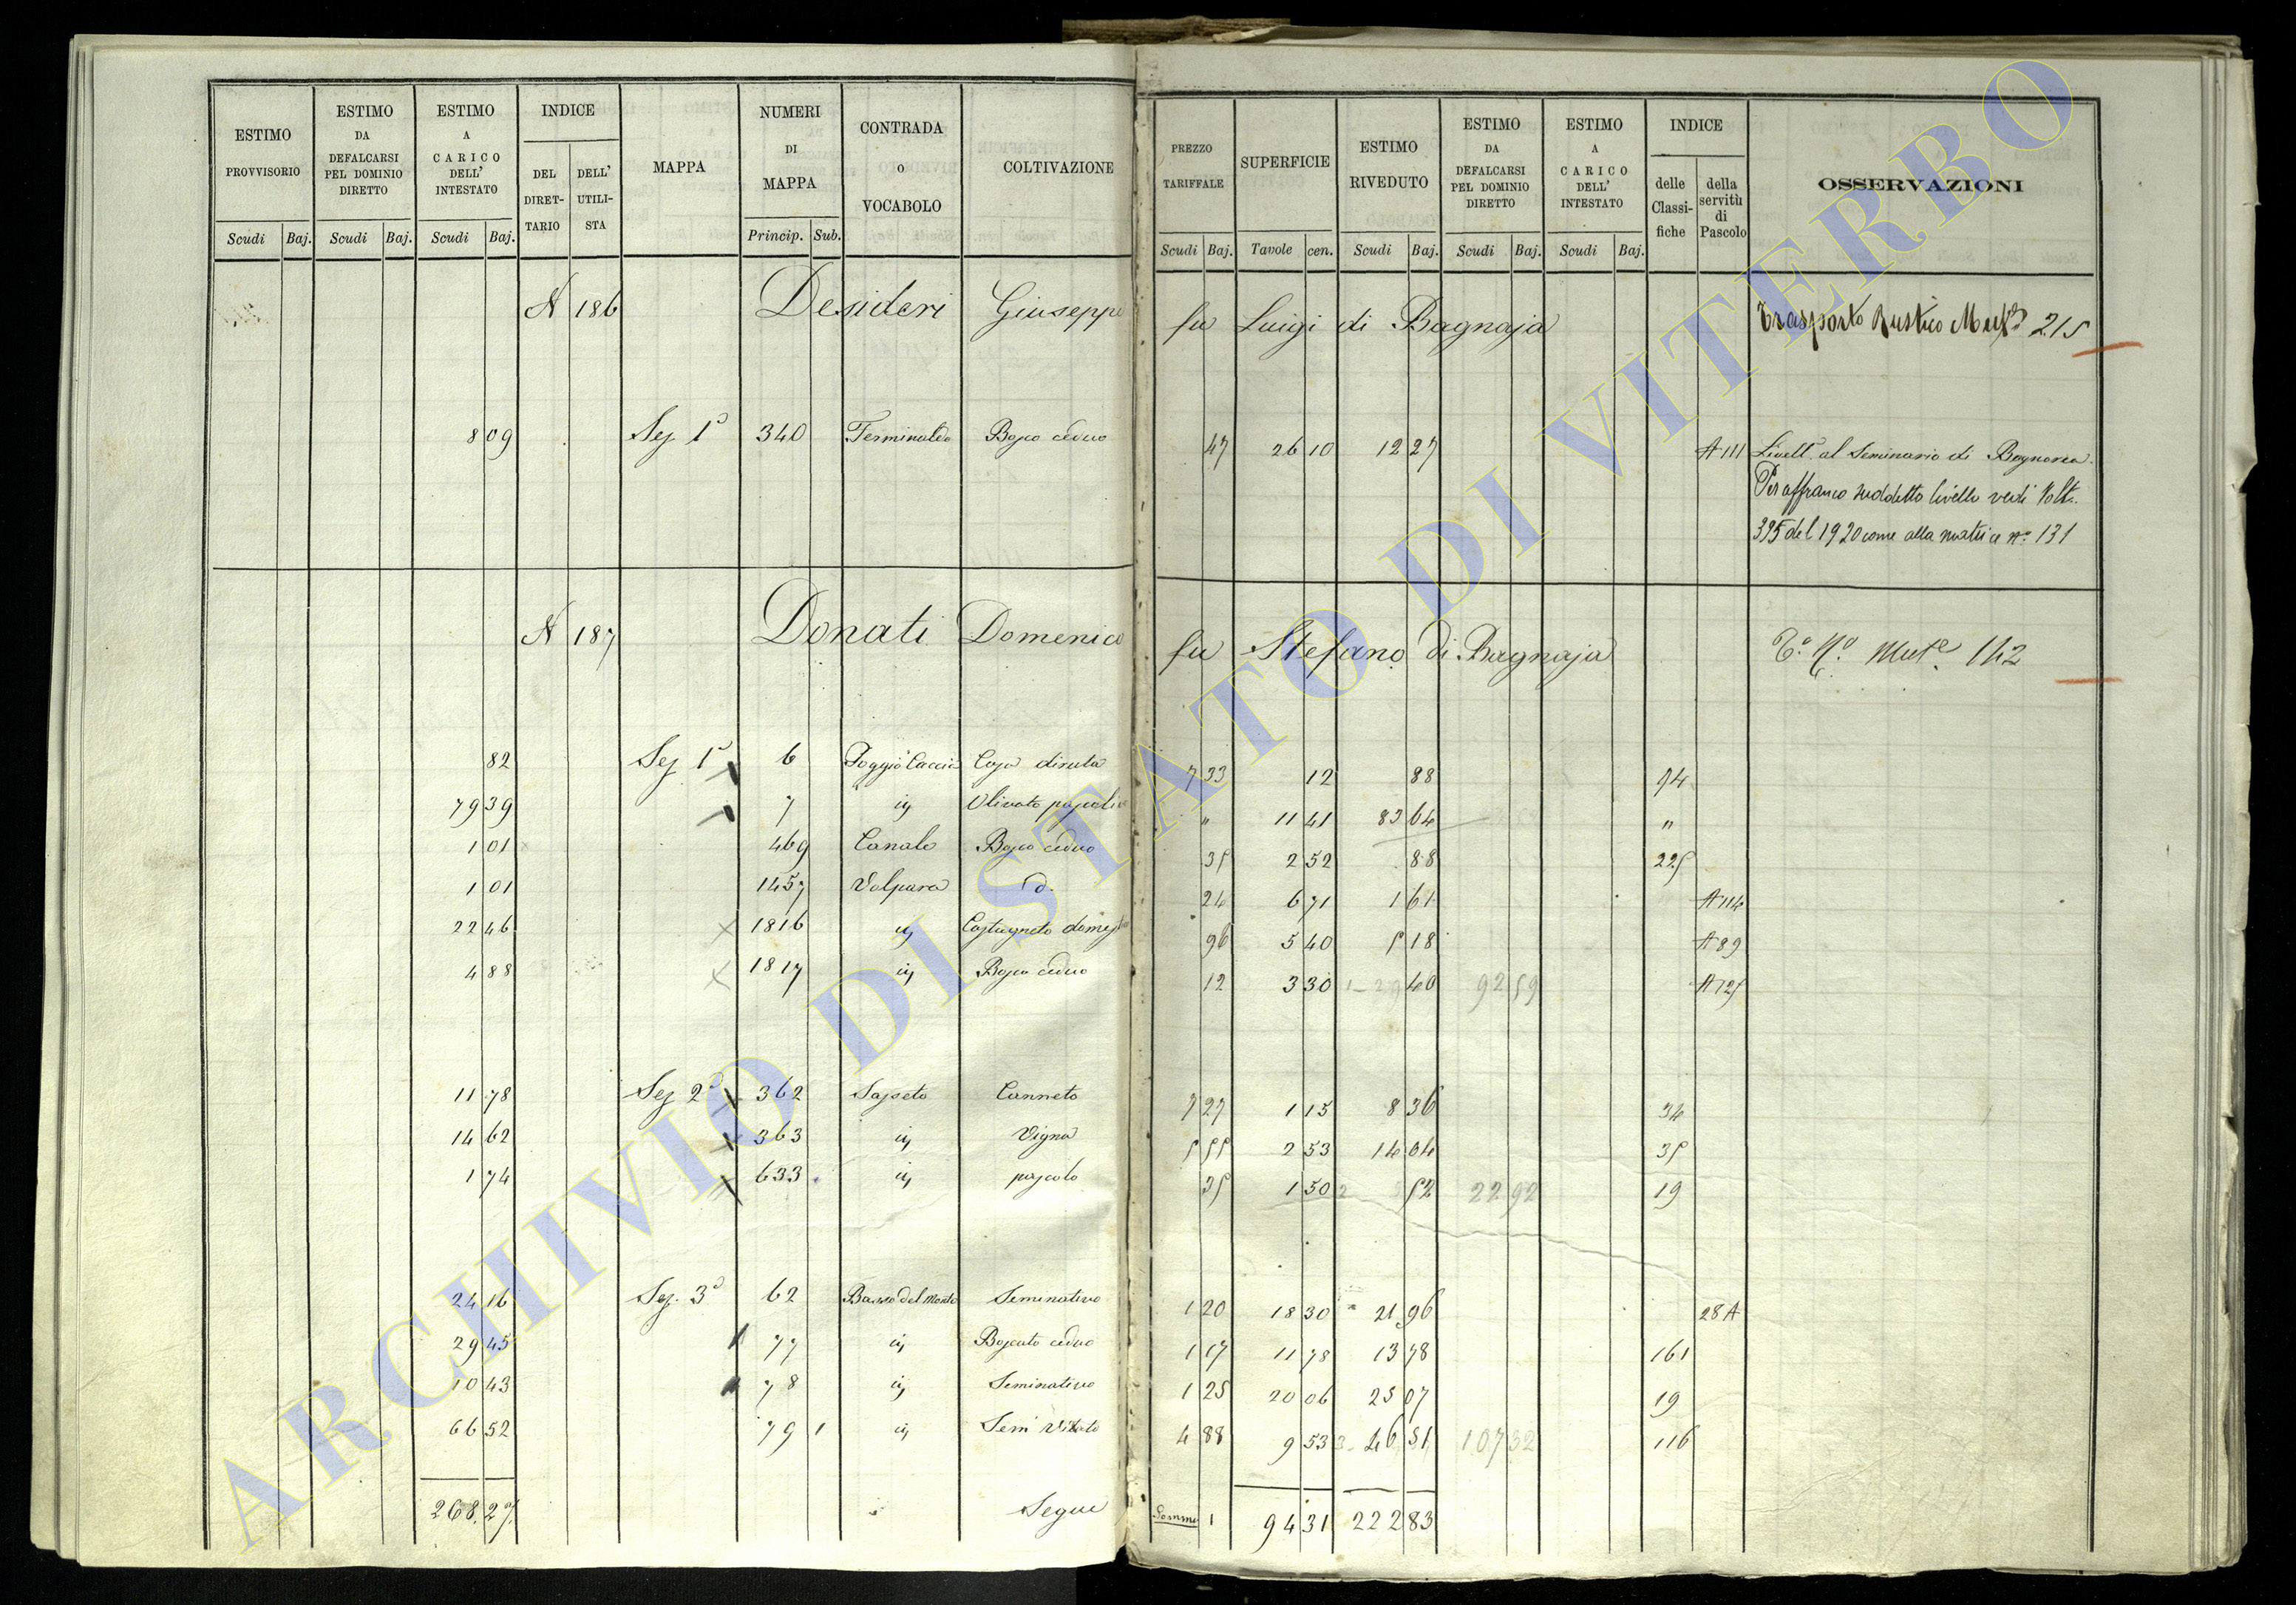 ESTIMO PROVVISORIO
ESTIMO DA DEFALCARSI PEL DOMINIO DIRETTO
ESTIMO A CARICO DELL' INTESTATO
INDICE
DEL DIRET-TARIO
DELL' UTILI-STA
MAPPA
NUMERI DI MAPPA
CONTRADA o VOCABOLO
COLTIVAZIONE
PREZZO TARIFFALE
SUPERFICIE
ESTIMO RIVEDUTO
ESTIMO DA DEFALCARSI PEL DOMINIO DIRETTO
ESTIMO A CARICO DELL' INTESTATO
INDICE
delle Classi-fiche
della servitù di Pascolo
OSSERVAZIONI
Scudi Baj. Scudi Baj. Scudi Baj. Princip. Sub. Scudi Baj. Tavole cen. Scudi Baj. Scudi Baj. Scudi Baj.
N 186 Desideri Giuseppe fu Luigi di Bagnaja Trasporto Rustico 215
8 09 Sez 1ª 340 Bosco ceduo 47 26 10 12 27 A 111 Livell. al Seminario di Bagnorea.
Per affranco suddetto livello vedi Volt.
395 del 1920 come alla matrice Nº 131
N 187 Donati Domenico fu Stefano di Bagnaja 142
82 Sez 1ª 6 Poggio Caccia Casa diruta 7 33 12 88 94
79 39 7 ij Olivato pascolivo " 11 41 83 64 "
1 01 469 Canale Bosco ceduo 35 2 52 88 225
1 01 1457 Valpara d. 24 6 71 1 61 A 114
22 46 1816 ij Castagneto domestico 96 5 40 5 18 A 89
4 88 1817 ij Bosco ceduo 12 3 30 40 92 59 A 125
11 78 Sez 2ª 362 Sasseto Canneto 7 27 1 15 8 36 34
14 62 363 ij Vigna 5 55 2 53 14 04 35
1 74 633 ij pascolo 35 1 50 52 22 92 19
24 16 Sez. 3ª 62 Basso del Monte Seminativo 1 20 18 30 21 96 28 A
29 45 77 ij Boscato ceduo 1 17 11 78 13 78 161
10 43 78 ij Seminativo 1 25 20 06 25 07 19
66 52 79 1 ij Sem Vitato 4 88 9 53 46 51 107 32 116
268.27. Segue Somma 94 31 222 83
ARCHIVIO DI STATO DI VITERBO